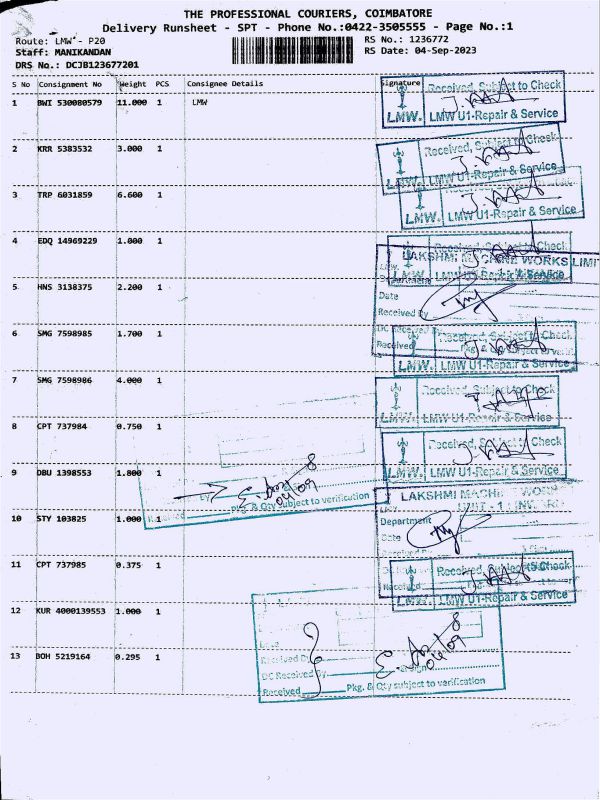 THE PROFESSIONAL COURIERS, COIMBATORE
Delivery Runsheet - SPT - Phone No.:0422-3505555 - Page No.:1
Route: LMW - P20 RS No.: 1236772
Staff: MANIKANDAN RS Date: 04-Sep-2023
DRS No.: DCJB123677201
S No Consignment No Weight PCS Consignee Details Signature
1 BWI 530080579 11.000 1 LMW
Received, Subject to Check
LMW. LMW U1-Repair & Service
2 KRR 5383532 3.000 1
Received, Subject to Check
LMW. LMW U1-Repair & Service
3 TRP 6031859 6.600 1
LMW. LMW U1-Repair & Service
4 EDQ 14969229 1.000 1
Received, Subject to Check
LAKSHMI MACHINE WORKS LIMI
LMW U1-Repair & Service
Department
5 HNS 3138375 2.200 1
Date
Received By
DC Received By
6 SMG 7598985 1.700 1
Received, Subject to Check
Received
LMW. LMW U1-Repair & Service
7 SMG 7598986 4.000 1
Received, Subject to Check
LMW. LMW U1-Repair & Service
8 CPT 737984 0.750 1
Received, Subject to Check
LMW. LMW U1-Repair & Service
9 DBU 1398553 1.800 1
04/09
Pkg. & Qty subject to verification
Received
LAKSHMI MACHINE WORKS
10 STY 103825 1.000 1
Department
Date
Received By
11 CPT 737985 0.375 1
Received, Subject to Check
LMW. LMW U1-Repair & Service
12 KUR 4000139553 1.000 1
04/09
13 BOH 5219164 0.295 1
Received By
DC Received By
Received Pkg. & Qty subject to verification